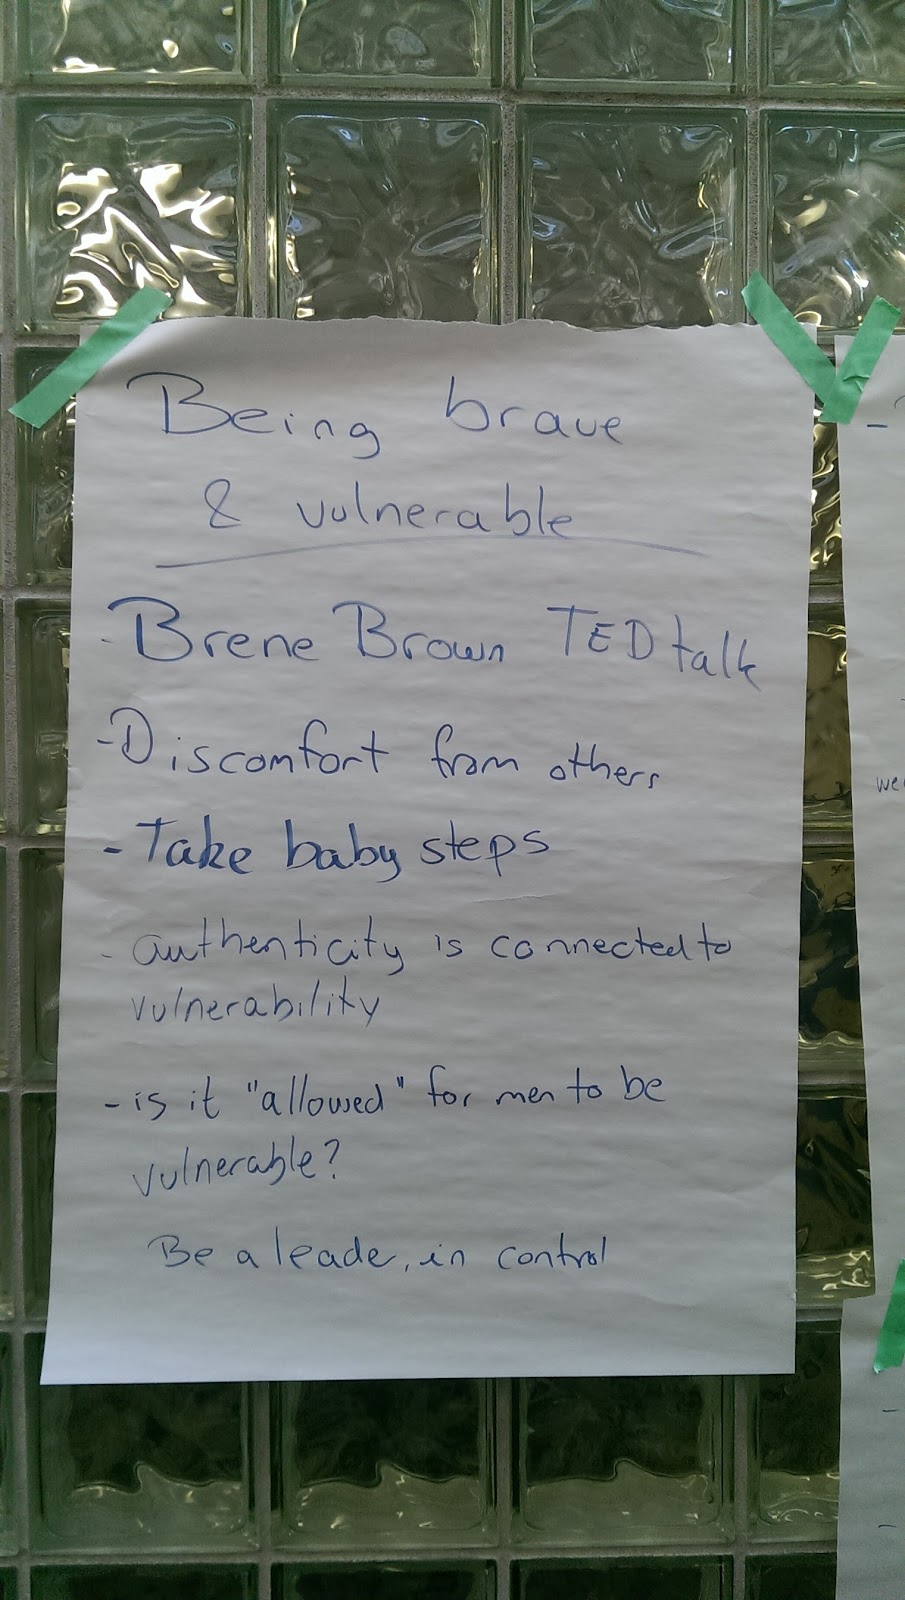 Being brave
& vulnerable
- Brene Brown TED talk
- Discomfort from others
- Take baby steps
- authenticity is connected to
vulnerability
- is it "allowed" for men to be
vulnerable?
Be a leade, in control